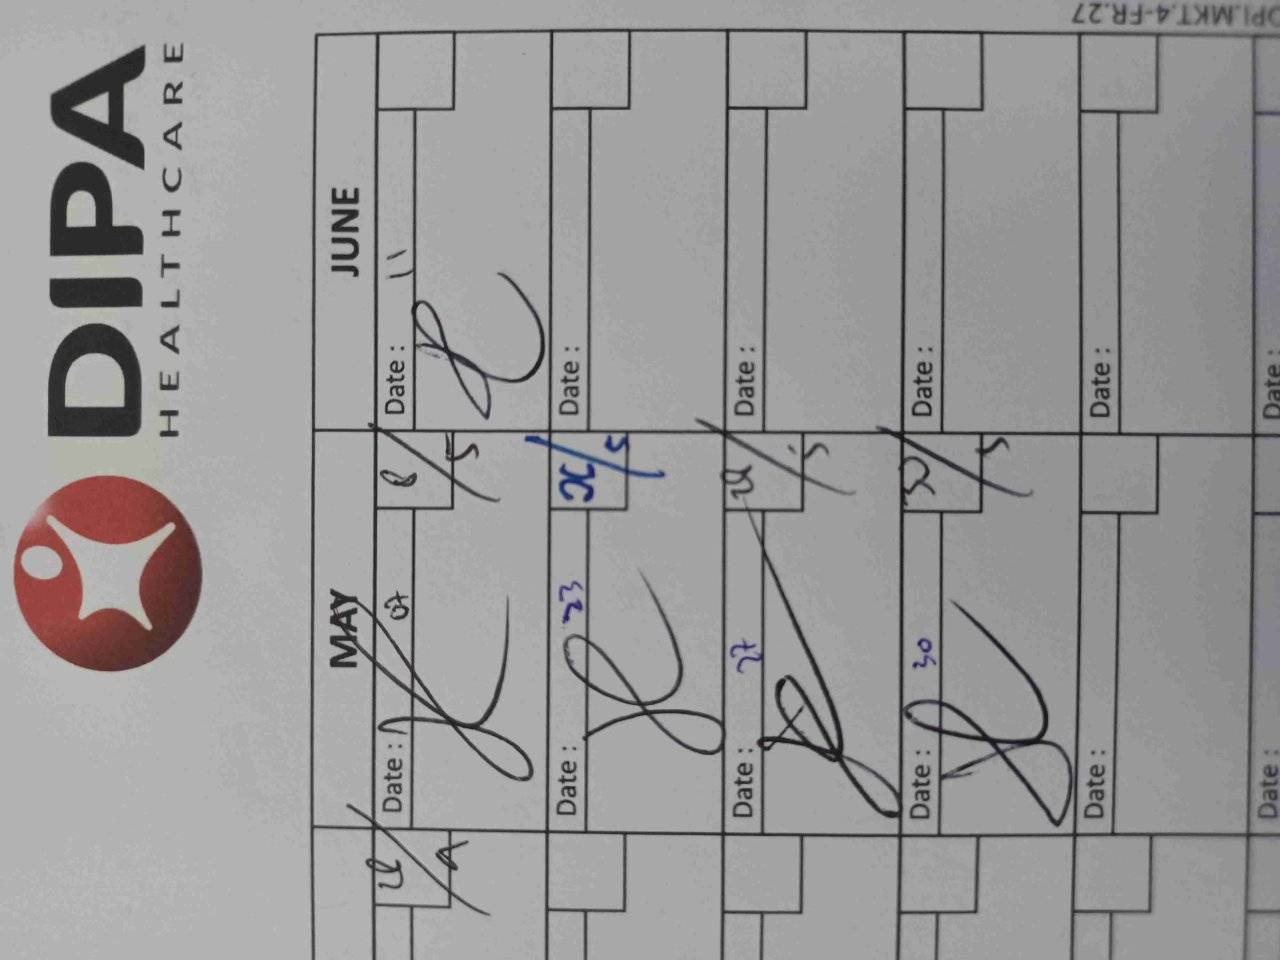 DIPA
HEALTHCARE
DPI.MKT.4-FR.27
MAY
JUNE
Date : 07
8/5
Date : 11
Date : 23
5
Date :
Date : 27
28/5
Date :
Date : 30
30/5
Date :
Date :
Date :
Date :
Date :